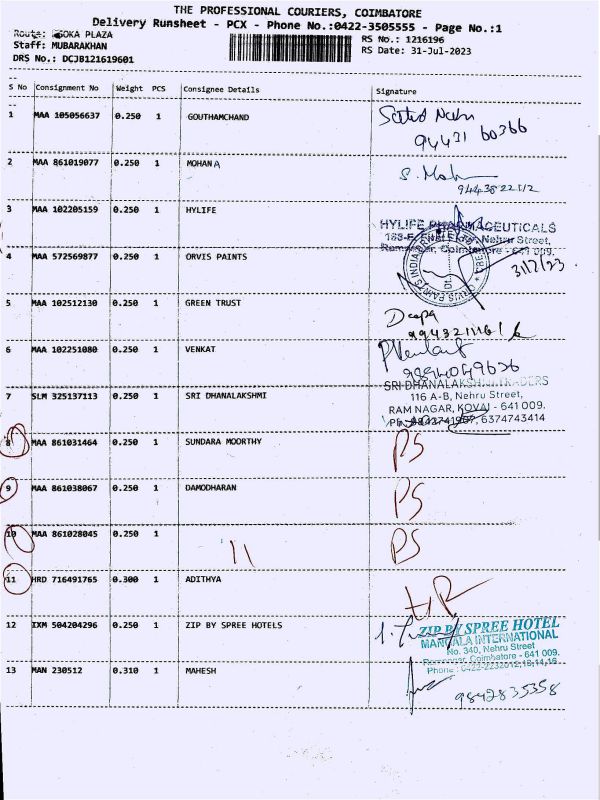 THE PROFESSIONAL COURIERS, COIMBATORE
Delivery Runsheet - PCX - Phone No.:0422-3505555 - Page No.:1
Route: PLAZA
RS No.: 1216196
Staff: MUBARAKHAN
RS Date: 31-Jul-2023
DRS No.: DCJB121619601
S No Consignment No Weight PCS Consignee Details Signature
1 MAA 105056637 0.250 1 GOUTHAMCHAND
94431 60366
2 MAA 861019077 0.250 1 MOHANA
S. Moh
3 MAA 102205159 0.250 1 HYLIFE
HYLIFE PHARMACEUTICALS
Nehru Street,
Coimbatore - 641 009.
4 MAA 572569877 0.250 1 ORVIS PAINTS
31/7/23
5 MAA 102512130 0.250 1 GREEN TRUST
Deepa
6 MAA 102251080 0.250 1 VENKAT
PVenkat
9894049626
7 SLM 325137113 0.250 1 SRI DHANALAKSHMI
SRI DHANALAKSHMI TRADERS
116 A-B, Nehru Street,
RAM NAGAR, KOVAI - 641 009.
6374743414
8 MAA 861031464 0.250 1 SUNDARA MOORTHY PS
9 MAA 861038067 0.250 1 DAMODHARAN PS
10 MAA 861028045 0.250 1 11 PS
11 HRD 716491765 0.300 1 ADITHYA
12 IXM 504204296 0.250 1 ZIP BY SPREE HOTELS
ZIP BY SPREE HOTEL
MANGALA INTERNATIONAL
No. 340, Nehru Street
Ramnagar, Coimbatore - 641 009.
Phone : 0422-2232012,13,14,16
13 MAN 230512 0.310 1 MAHESH
9842835358